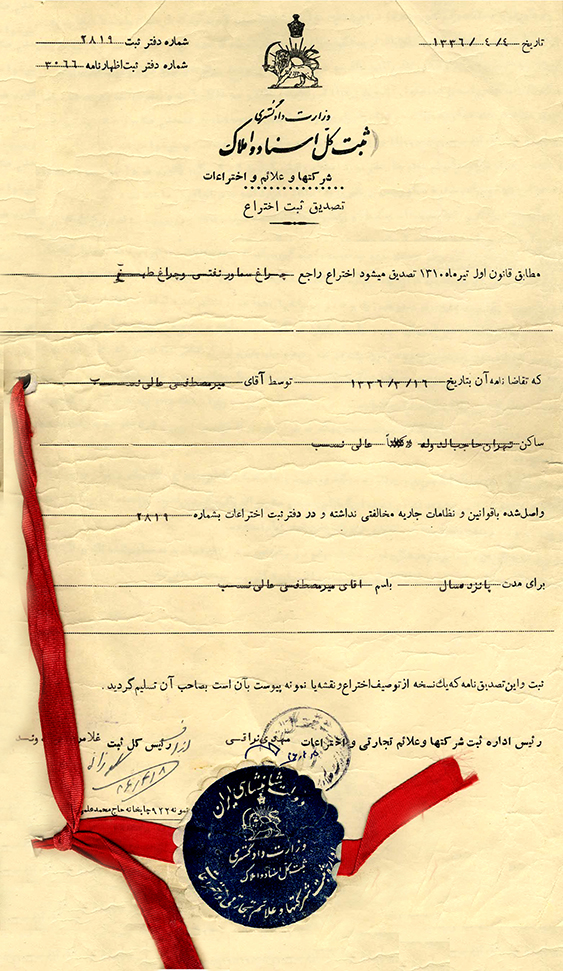 تاریخ ۱۳۳۶/۴/۴
شماره دفتر ثبت ۲۸۱۹
شماره دفتر ثبت اظهارنامه ۳۰۶۶
وزارت دادگستری
ثبت کل اسناد و املاک
شرکتها و علائم و اختراعات
تصدیق ثبت اختراع
مطابق قانون اول تیرماه ۱۳۱۰ تصدیق میشود اختراع راجع چراغ سماور نفتی و چراغ
که تقاضا نامه آن بتاریخ ۱۳۳۶/۳/۱۶ توسط آقای میرمصطفی عالی نسب
ساکن تهران حاجب الدوله عالی نسب
واصل شده باقوانین و نظامات جاریه مخالفتی نداشته و در دفتر ثبت اختراعات بشماره ۲۸۱۹
برای مدت پانزده سال باسم اقای میرمصطفی عالی نسب
ثبت و این تصدیق نامه که یك نسخه از توصیف اختراع و نقشه یا نمونه پیوست بآن است بصاحب آن تسلیم گردید .
رئیس اداره ثبت شرکتها و علائم تجارتی و اختراعات مهدی نراقی
رئیس کل ثبت
نمونه ۹۲۲ چاپخانه حاج محمدعلی
دولت شاهنشاهی ایران
وزارت دادگستری
ثبت کل اسناد و املاک
اداره ثبت شرکتها و علائم تجارتی و اختراعات